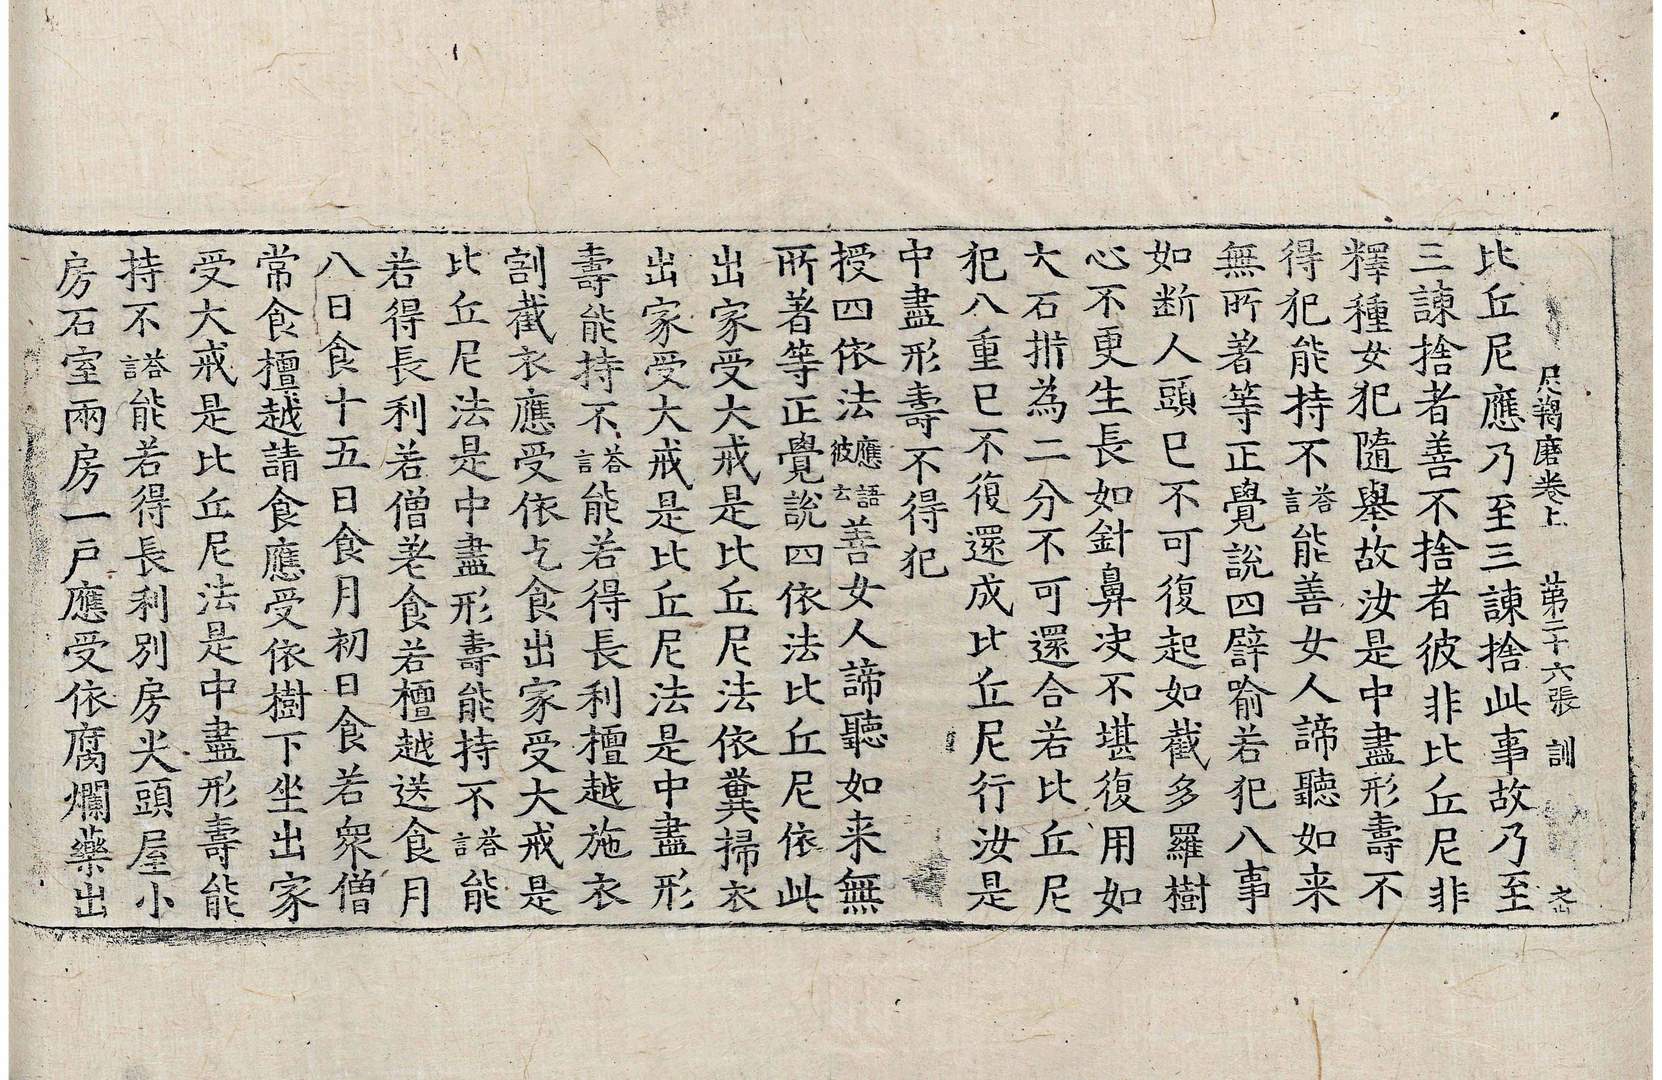 尼羯磨卷上 第二十六張 訓
比丘尼應乃至三諫捨此事故乃至
三諫捨者善不捨者彼非比丘尼非
釋種女犯隨舉故汝是中盡形壽不
得犯能持不答言能善女人諦聽如来
無所著等正覺說四譬喻若犯八事
如断人頭已不可復起如截多羅樹
心不更生長如針鼻决不堪復用如
大石㭊為二分不可還合若比丘尼
犯八重已不復還成比丘尼行汝是
中盡形壽不得犯
授四依法應語彼云善女人諦聽如来無
所著等正覺說四依法比丘尼依此
出家受大戒是比丘尼法依糞掃衣
出家受大戒是比丘尼法是中盡形
壽能持不答言能若得長利檀越施衣
割截衣應受依乞食出家受大戒是
比丘尼法是中盡形壽能持不答言能
若得長利若僧差食若檀越送食月
八日食十五日食月初日食若衆僧
常食檀越請食應受依樹下坐出家
受大戒是比丘尼法是中盡形壽能
持不答言能若得長利別房尖頭屋小
房石室兩房一戶應受依腐爛藥出